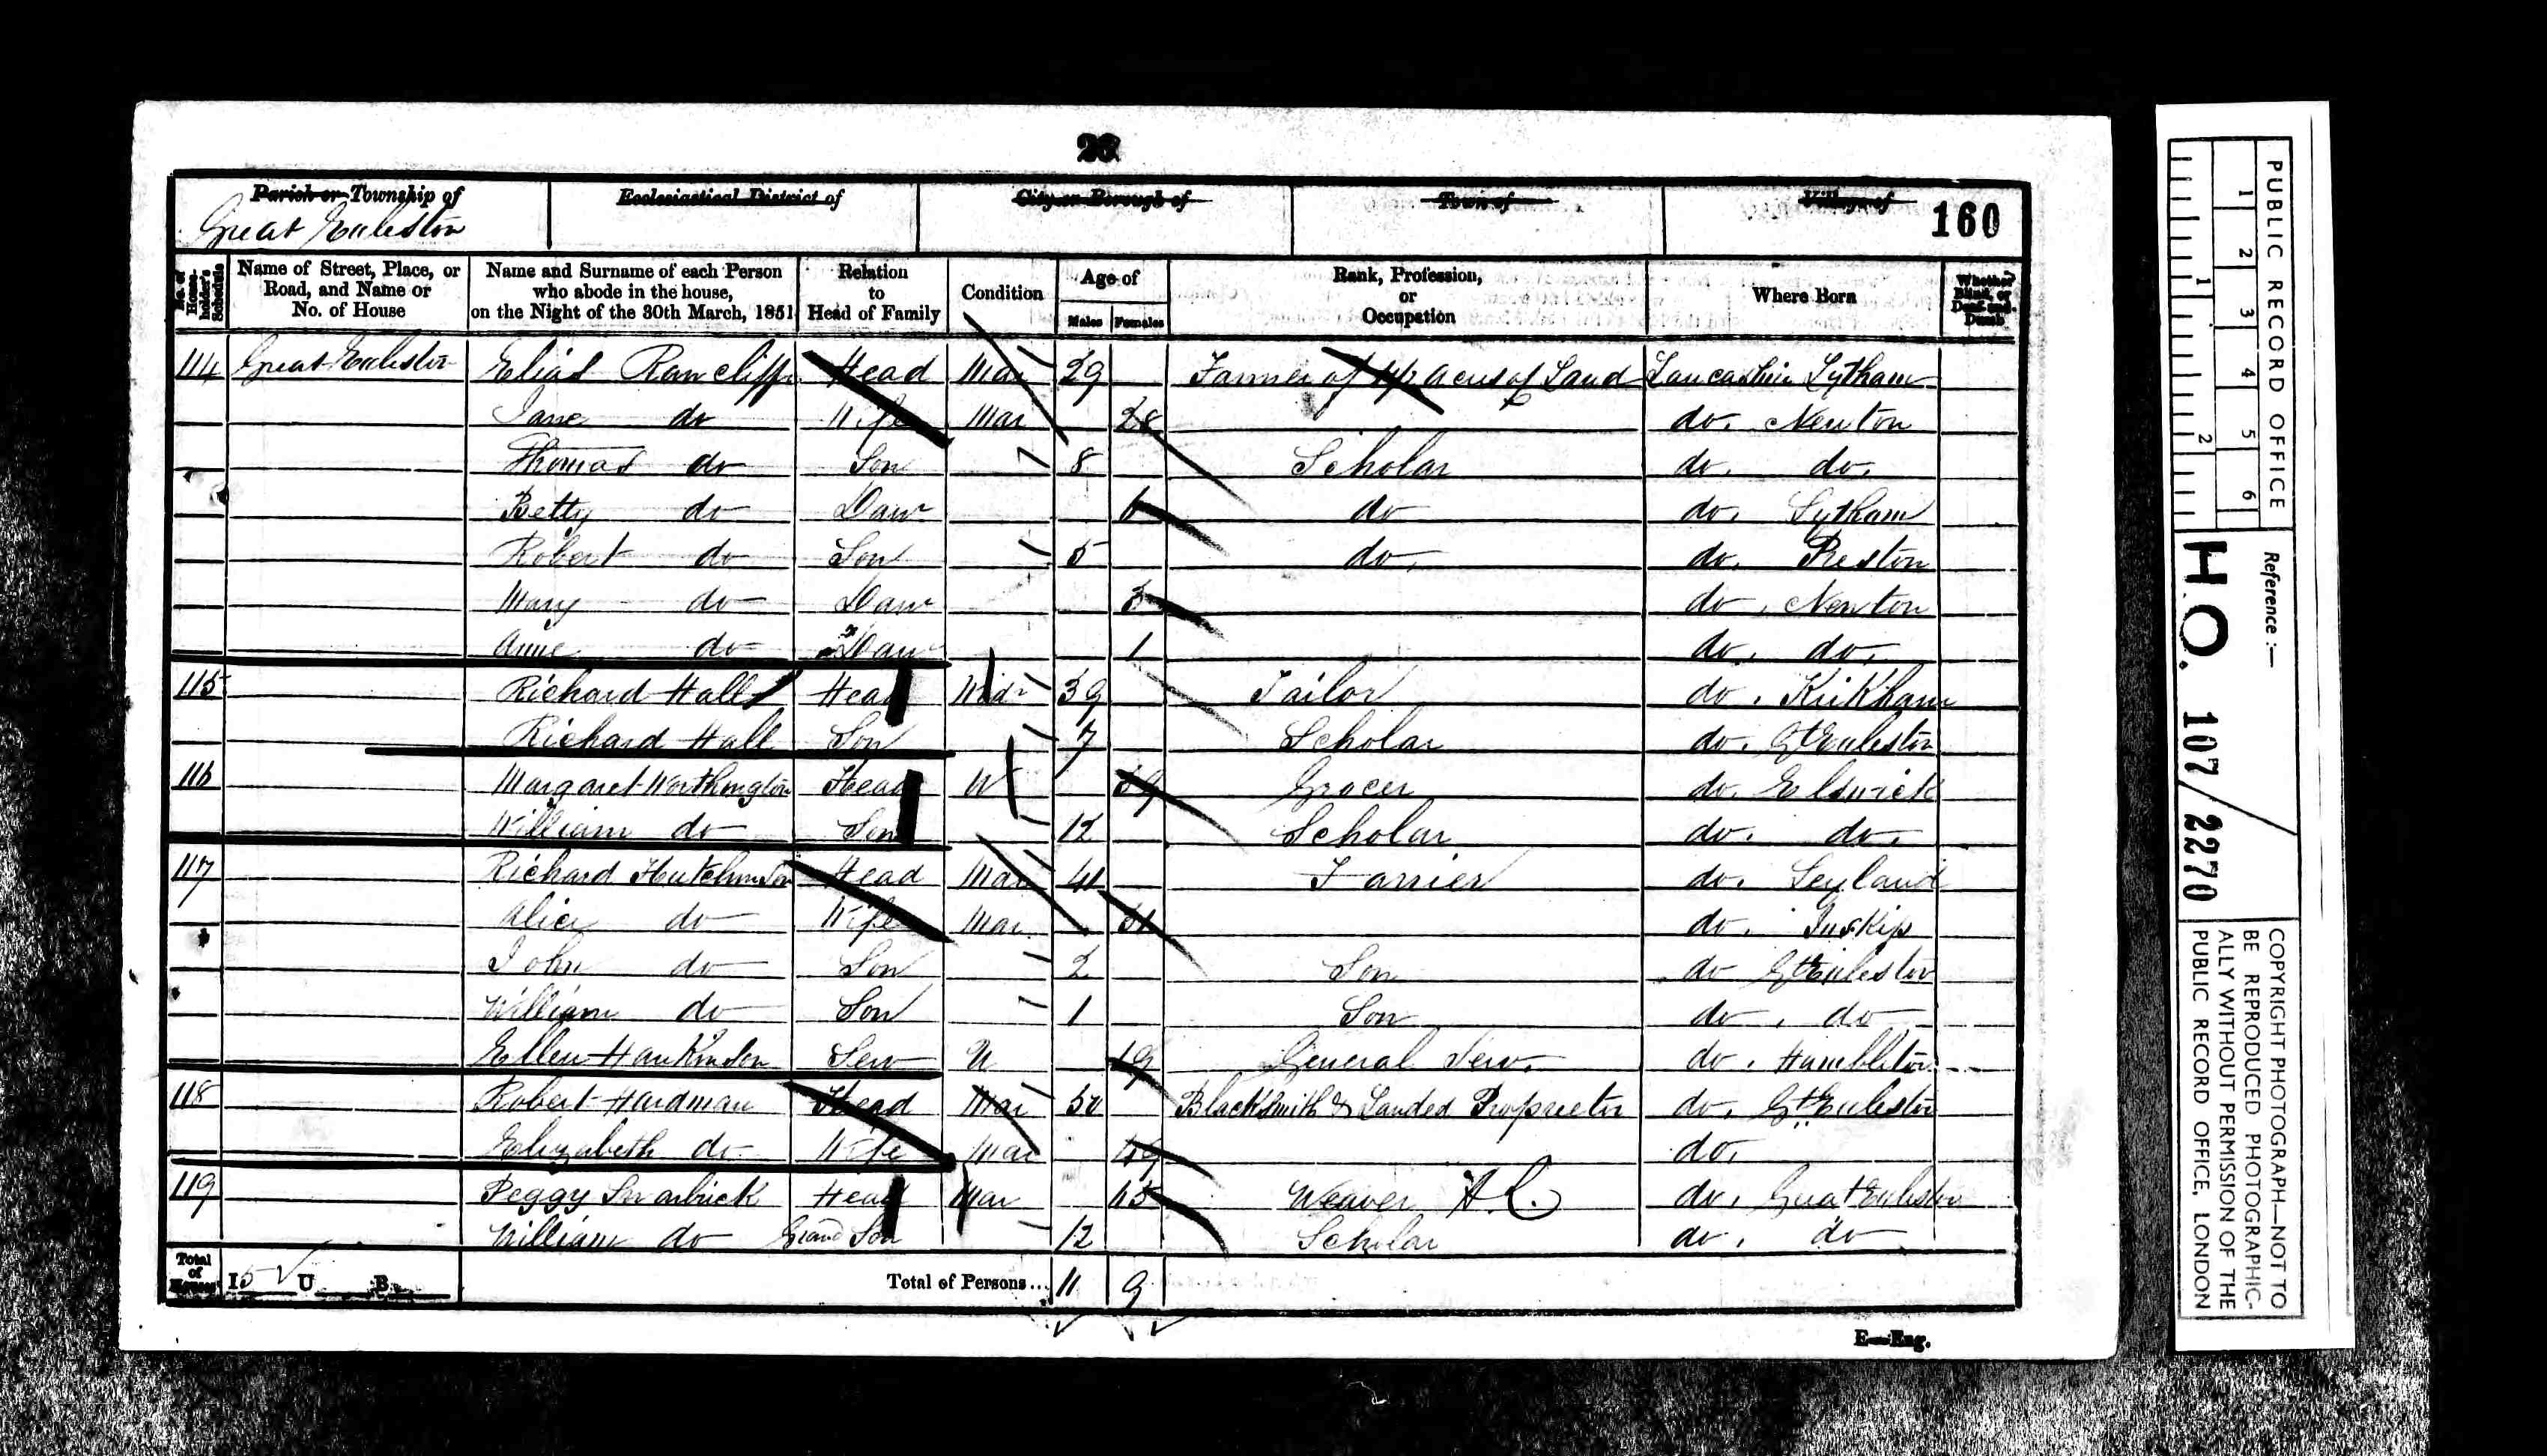 Parish or Township of
Great Eccleston
Ecclesiastical District of
City or Borough of
Town of
Village of
160
No. of House-holder's Schedule
Name of Street, Place, or Road, and Name or No. of House
Name and Surname of each Person who abode in the house, on the Night of the 30th March, 1851
Relation to Head of Family
Condition
Age of
Males Females
Rank, Profession, or Occupation
Where Born
Whether Blind, or Deaf-and-Dumb
114 Great Eccleston Elias Rawcliffe Head Mar 29 Farmer of acres of Land Lancashire Lytham
Jane do Wife Mar 28 do. Newton
Thomas do Son 8 Scholar do. do.
Betty do Daur do do. Lytham
Robert do Son 5 do. do. Preston
Mary do Daur 3 do. Newton
Anne do Daur 1 do. do.
115 Richard Hall Head Widr 39 Tailor do. Kirkham
Richard Hall Son 7 Scholar do. Gt Eccleston
116 Margaret Worthington Head W Grocer do. Elswick
William do Son 12 Scholar do. do.
117 Richard Hutchinson Head Mar 41 Farrier do. Leyland
Alice do Wife Mar 31 do. Inskip
John do Son 2 Son do Gt Eccleston
William do Son 1 Son do. do
Ellen Hankinson Serv U 19 General Serv. do. Hambleton
118 Robert Hardman Head Mar 50 Blacksmith & Landed Proprietor do. Gt Eccleston
Elizabeth do Wife Mar 49 do.
119 Peggy Swarbrick Head Mar Weaver H.L. do. Great Eccleston
William do Grand Son 12 Scholar do. do
Total of Houses I 5 U B
Total of Persons... 11 9
E—Eng.
PUBLIC RECORD OFFICE
1 2 3 4 5 6
1 2
Reference:—
H.O. 107/2270
COPYRIGHT PHOTOGRAPH—NOT TO
BE REPRODUCED PHOTOGRAPHIC-
ALLY WITHOUT PERMISSION OF THE
PUBLIC RECORD OFFICE, LONDON